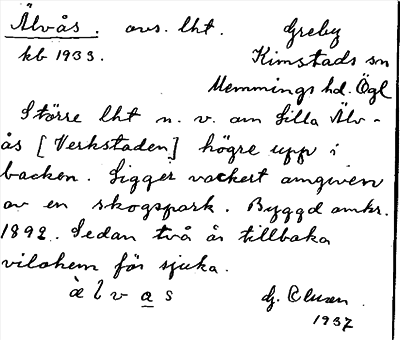 Älvås. avs. lht. Greby
kb 1933. Kimstads sn
Memmings hd. Ögl
Större lht n. v. om Lilla Älv-
ås [Verkstaden] högre upp i
backen. Ligger vackert omgiven
av en skogspark. Byggd omkr.
1892. Sedan två år tillbaka
vilohem för sjuka.
älvas G. Clusen.
1937